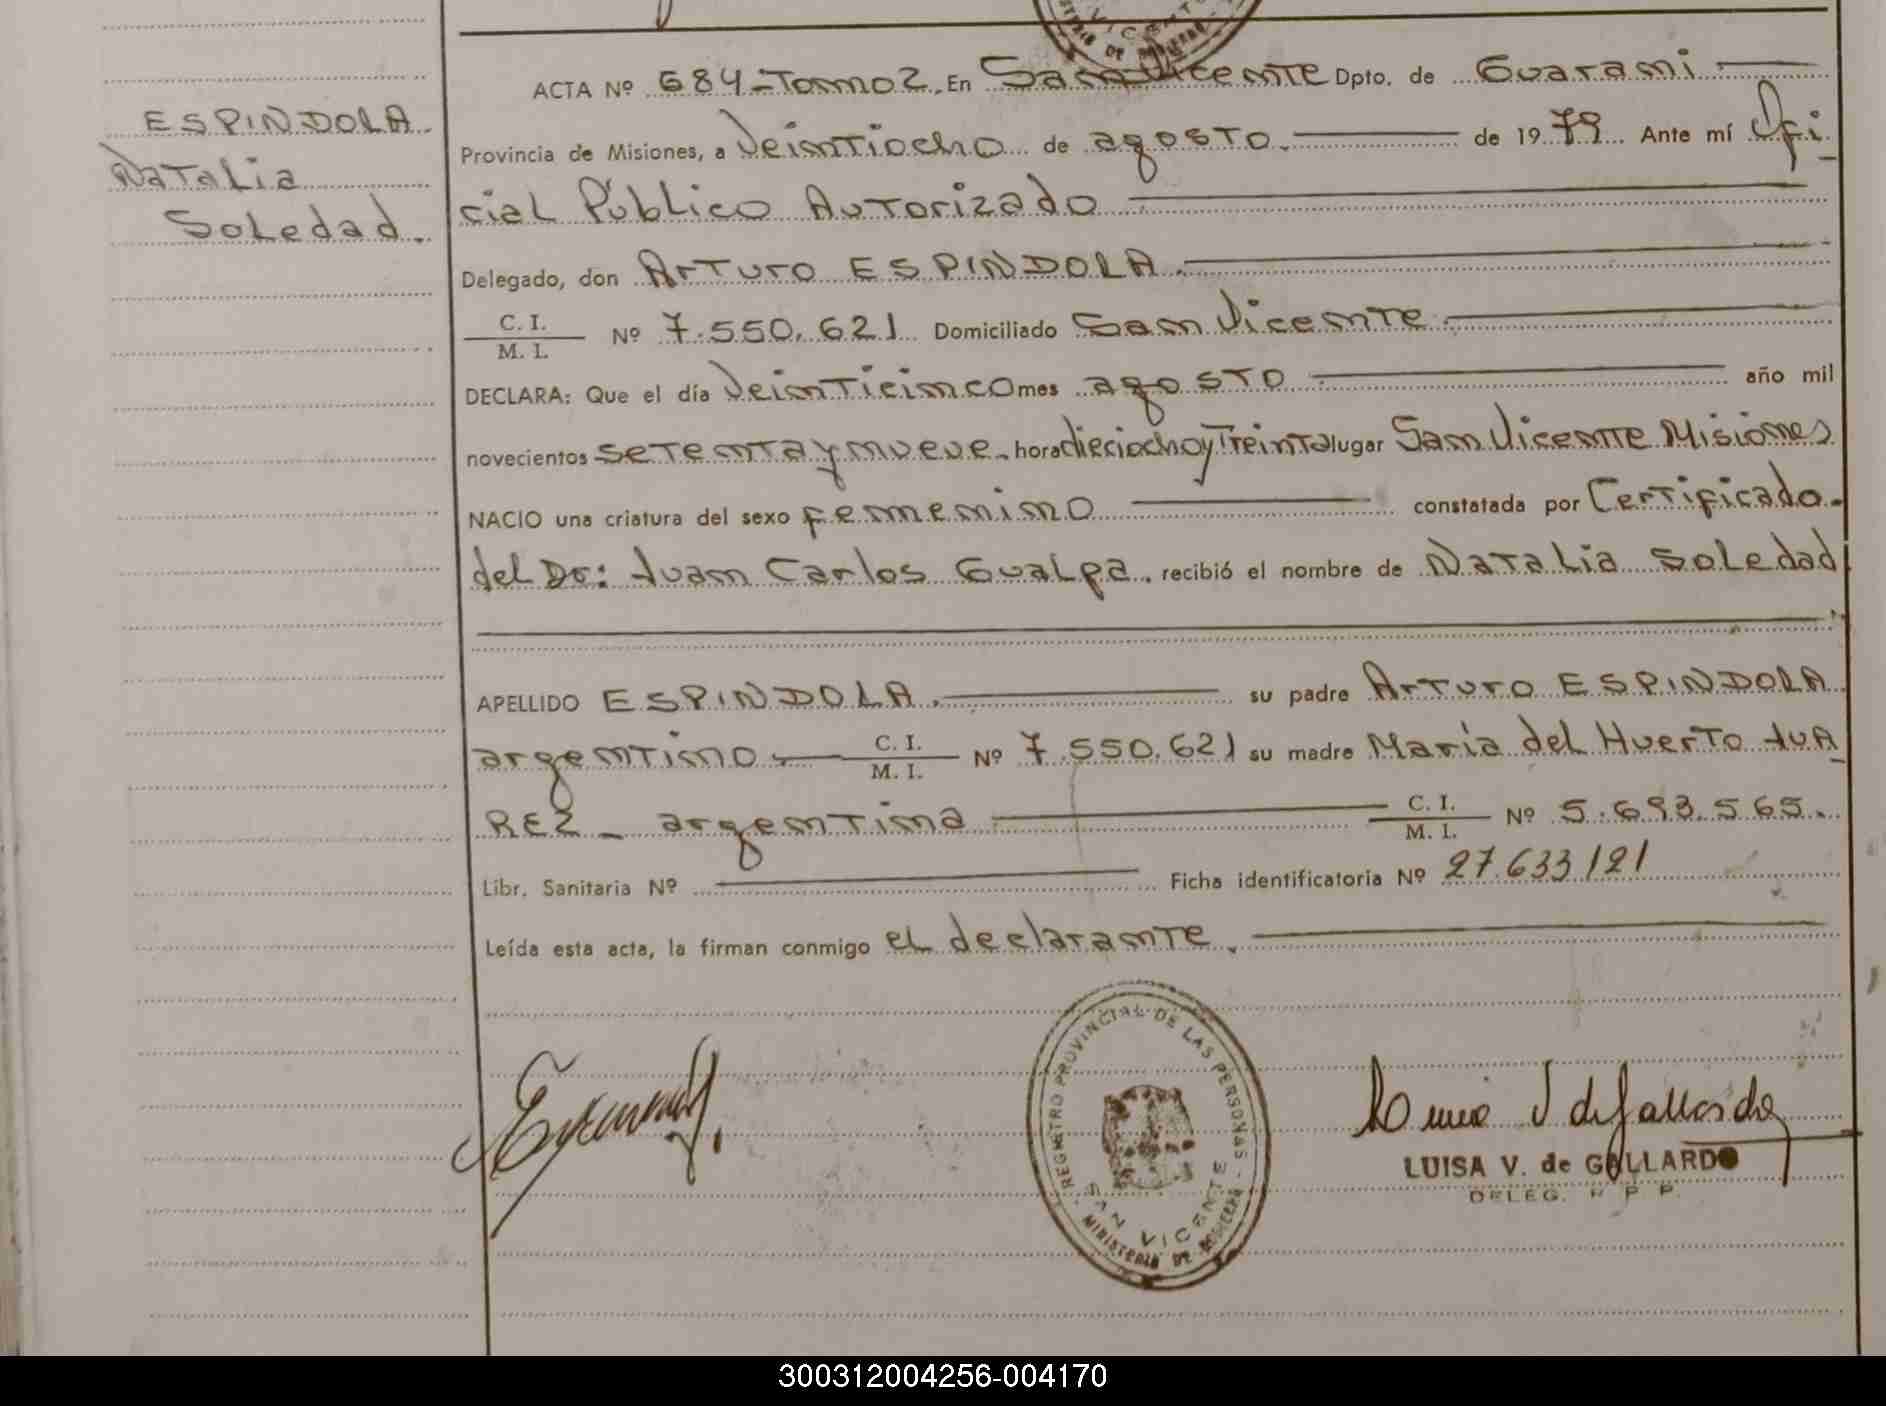 ACTA Nº 684-Tomo 2. En San Vicente Dpto. de Guaraní
ESPINDOLA
Provincia de Misiones, a Veintiocho de agosto. de 1979 Ante mí Ofi-
Natalia
cial Público Autorizado
Soledad.
Delegado, don Arturo ESPINDOLA.
C. I.
M. I. Nº 7.550.621 Domiciliado San Vicente.
DECLARA: Que el día Veinticinco mes agosto año mil
novecientos setenta y nueve. hora dieciocho y Treinta lugar San Vicente Misiones
NACIO una criatura del sexo femenino constatada por Certificado.
del Dr: Juan Carlos Gualpa. recibió el nombre de Natalia Soledad
APELLIDO ESPINDOLA. su padre Arturo ESPINDOLA
argentino C. I. M. I. Nº 7.550.621 su madre María del Huerto JUA-
REZ - argentina C. I. M. I. Nº 5.693.565.
Libr. Sanitaria Nº Ficha identificatoria Nº 27.633.121
Leída esta acta, la firman conmigo el declarante.
REGISTRO PROVINCIAL DE LAS PERSONAS
SAN VICENTE
MINISTERIO DE GOBIERNO
Luisa V de Gallardo
LUISA V. de GALLARDO
DELEG. R P P.
300312004256-004170